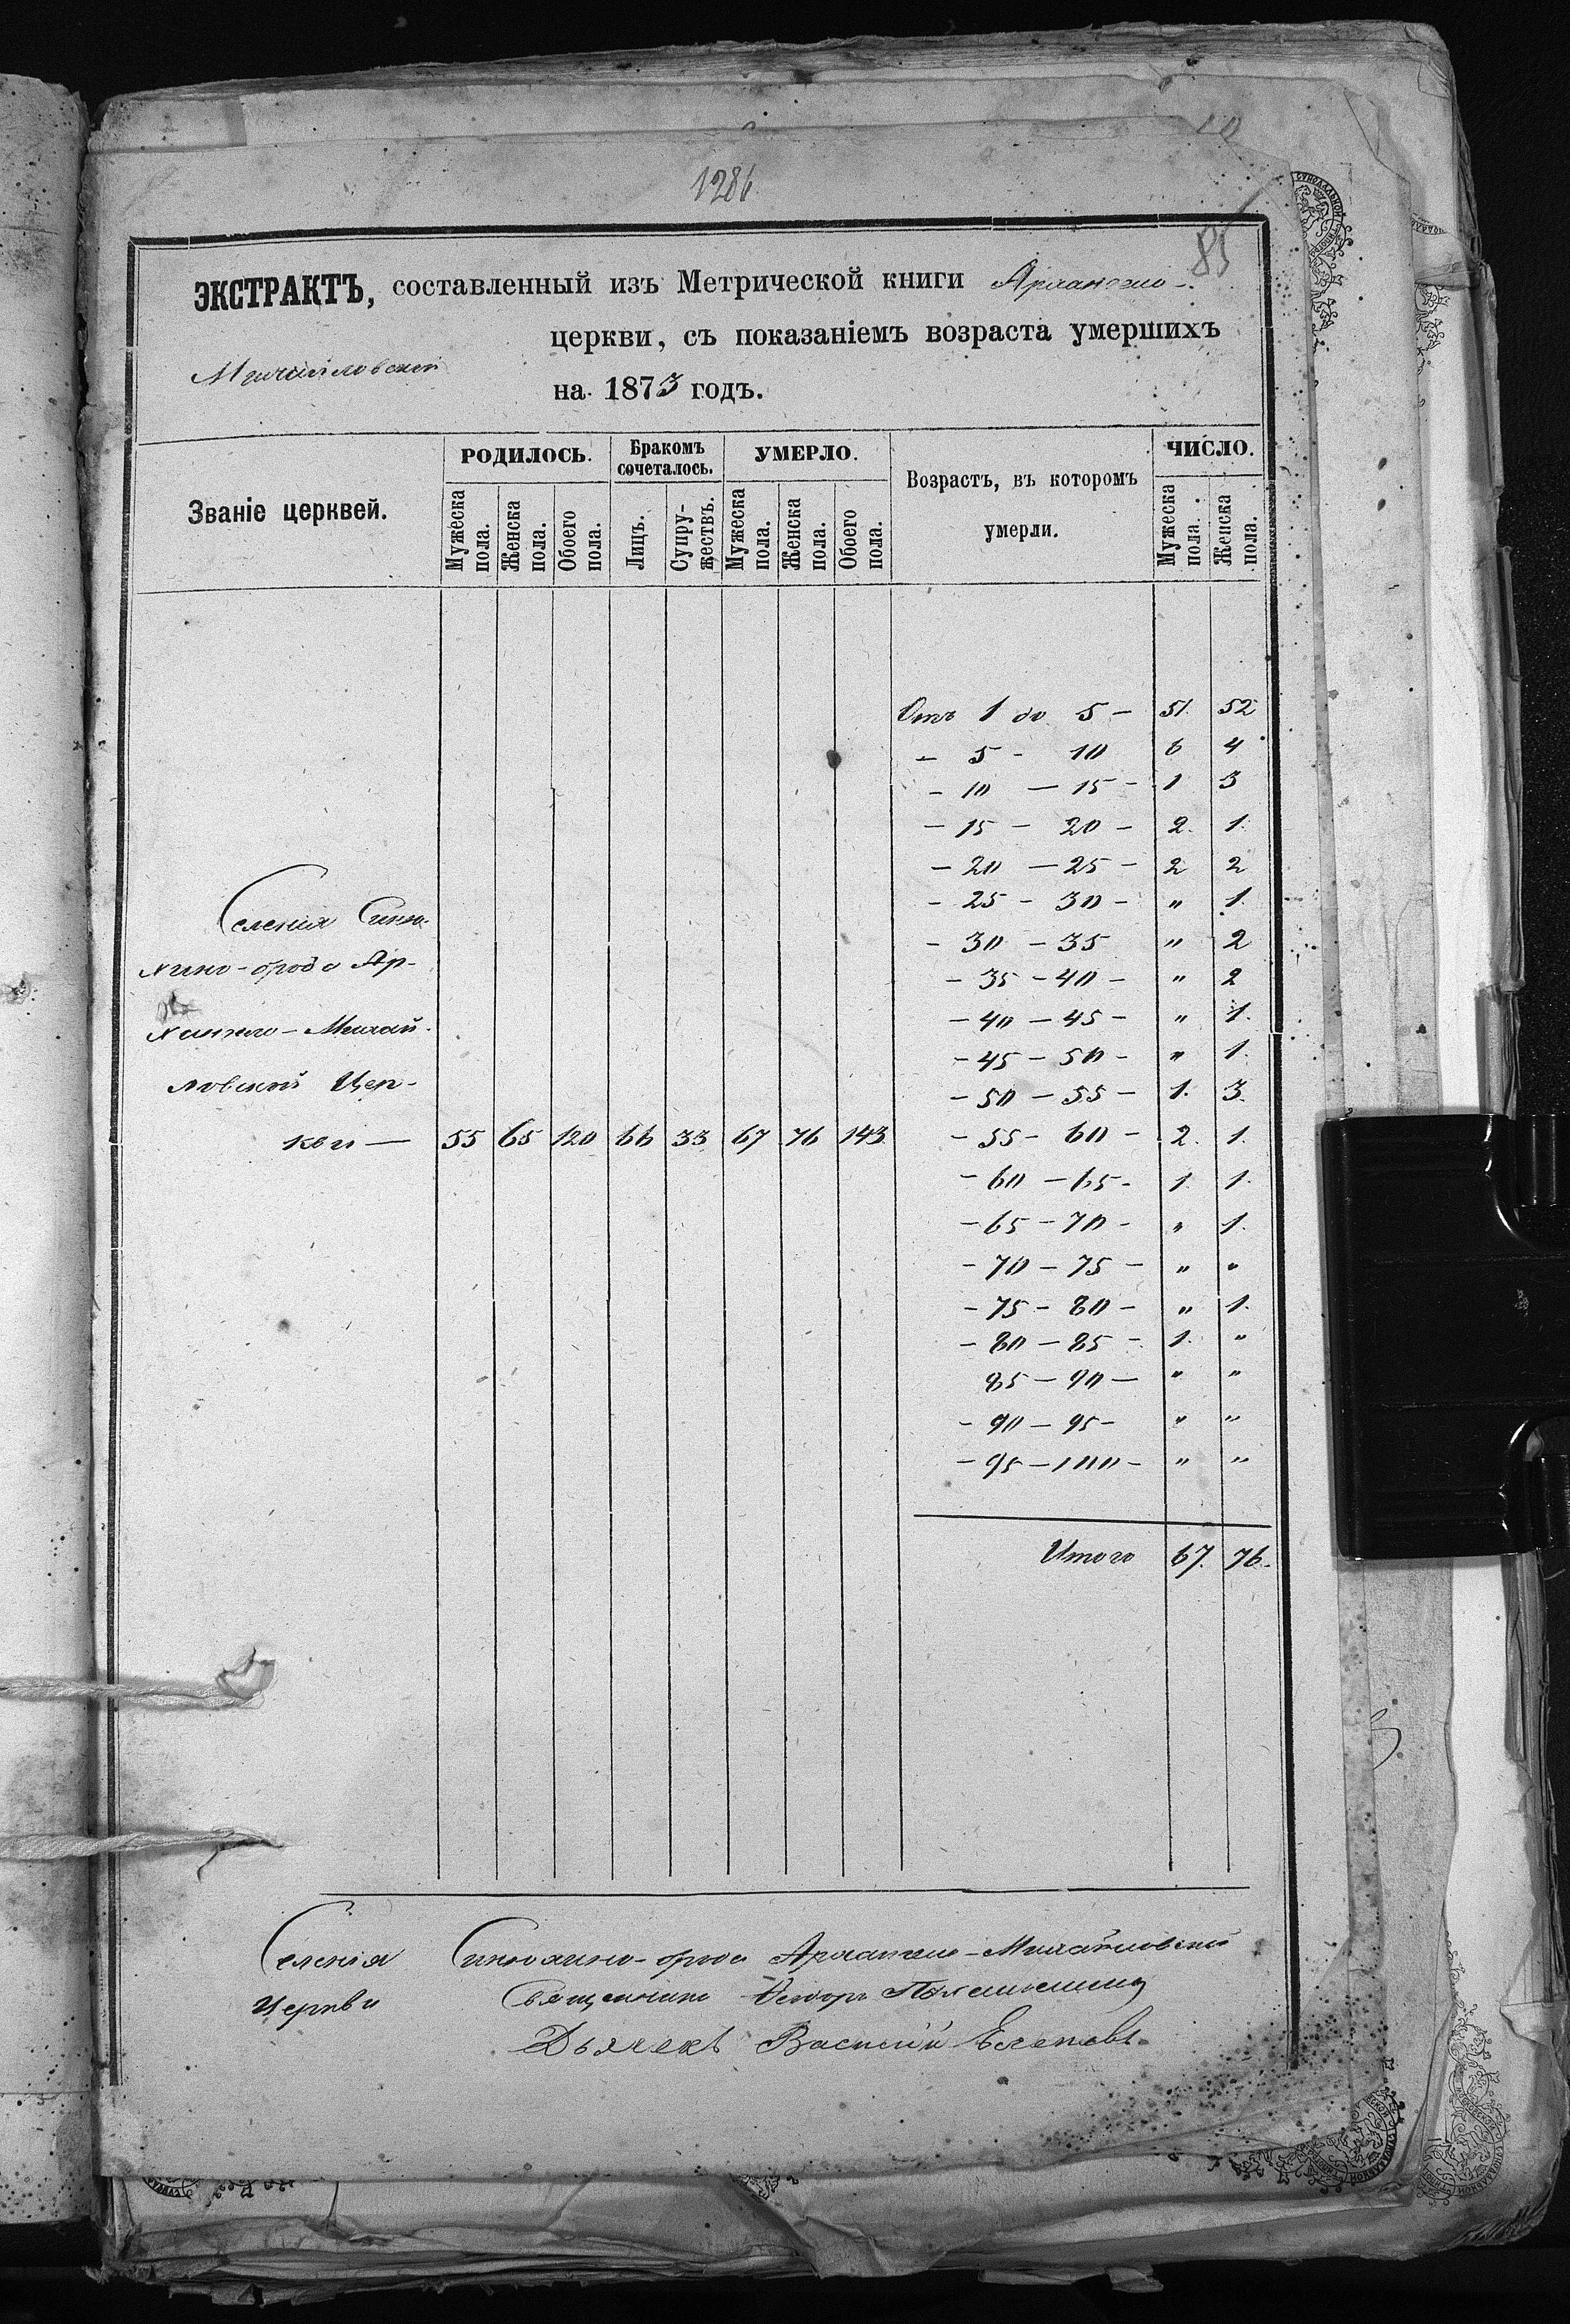 1286
85
ЭКСТРАКТЪ, составленный изъ Метрической книги Архангело-
Михайловской церкви, съ показаніемъ возраста умершихъ
на 1873 годъ.
Званіе церквей. РОДИЛОСЬ. Бракомъ сочеталось. УМЕРЛО. Возрастъ, въ которомъ умерли. ЧИСЛО.
Мужеска пола. Женска пола. Обоего пола. Лицъ. Супружествъ. Мужеска пола. Женска пола. Обоего пола. Мужеска пола. Женска пола.
Отъ 1 до 5 — 51. 52
— 5 — 10 6 4
— 10 — 15 — 1 3
— 15 — 20 — 2. 1.
— 20 — 25 — 2 2
— 25 — 30 — „ 1.
— 30 — 35 „ 2
— 35 — 40 — „ 2
— 40 — 45 — „ 1.
— 45 — 50 — „ 1.
— 50 — 55 — 1. 3.
Селенія
Ар-
хангело-Михай-
ловской Цер-
кви — 55 65 120 66 33 67 76 143.
— 55 — 60 — 2. 1.
— 60 — 65 — 1 1.
— 65 — 70 — „ 1.
— 70 — 75 — „ „
— 75 — 80 — „ 1.
— 80 — 85 — 1. „
85 — 90 — „ „
— 90 — 95 — „ „
— 95 — 100 — „ „
Итого 67. 76.
Селенія Архангело-Михайловской
Церкви Священникъ
Дьячекъ Василій